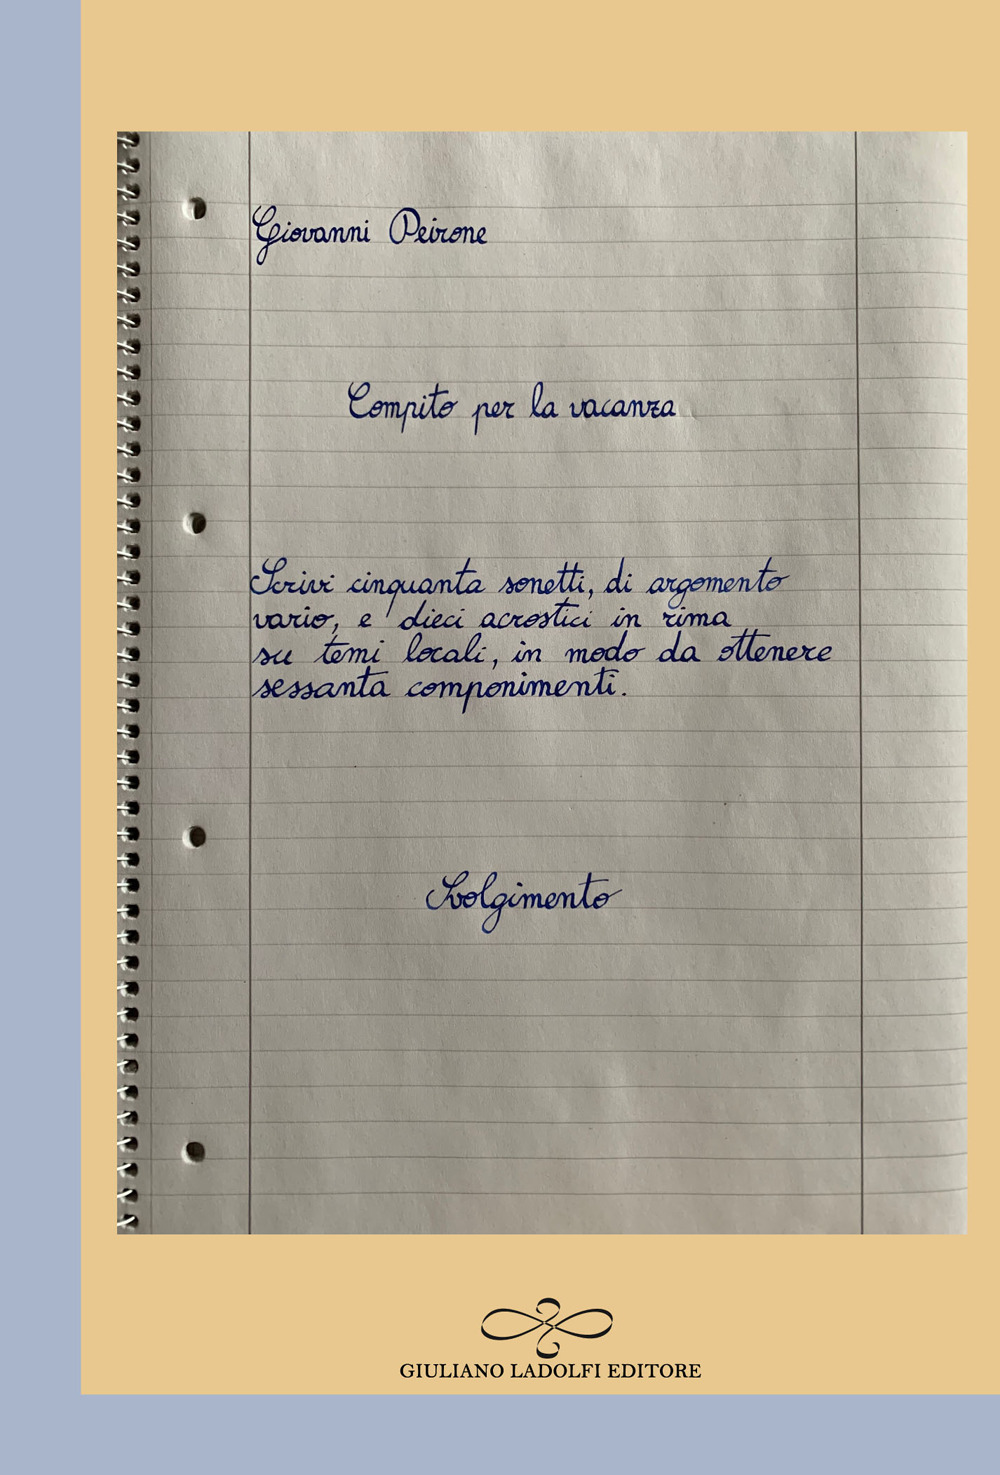 Giovanni Peirone
Compito per la vacanza
Scrivi cinquanta sonetti, di argomento
vario, e dieci acrostici in rima
su temi locali, in modo da ottenere
sessanta componimenti.
Svolgimento
GIULIANO LADOLFI EDITORE